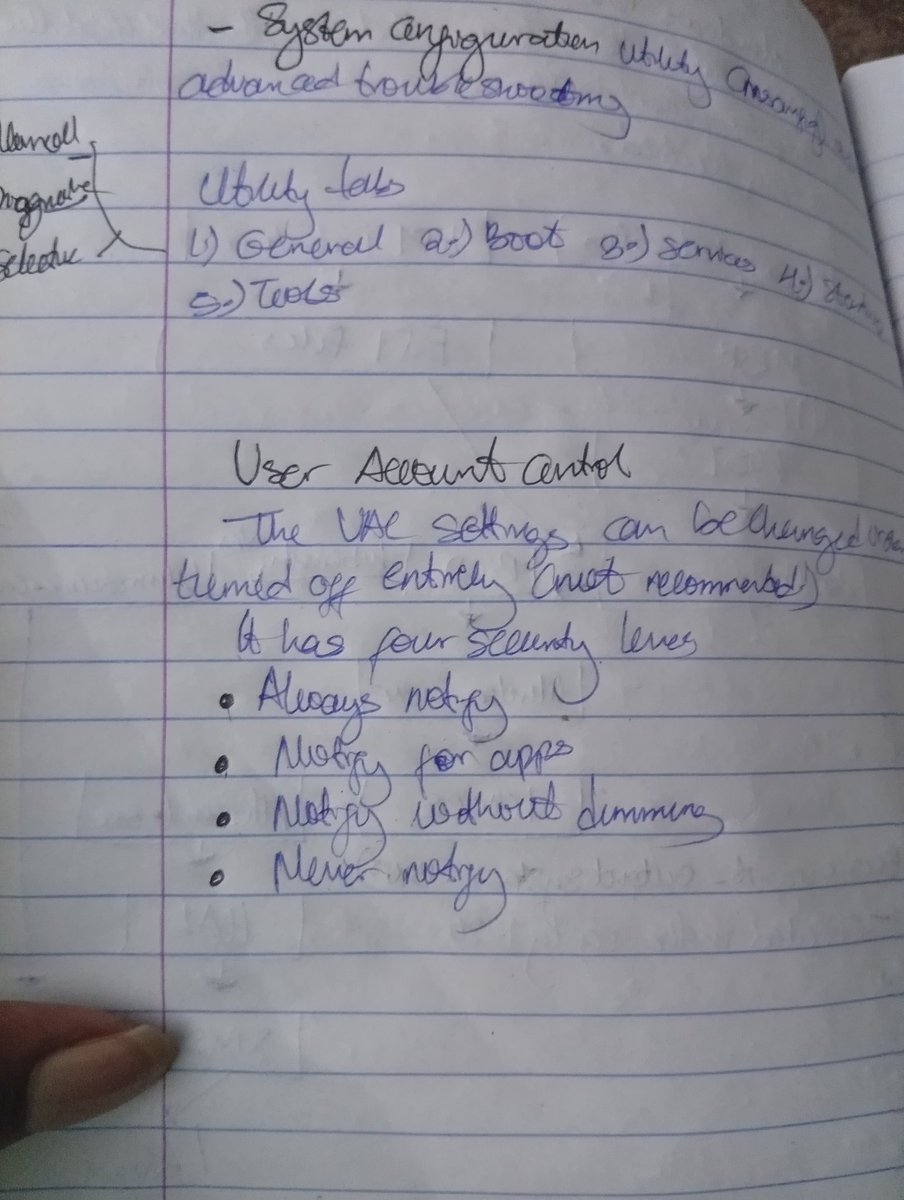 - System Configuration Utility
advanced troubleshooting
Normal
Diagnostic
Selective
Utility tabs
1.) General 2.) Boot 3.) Services 4.) Startup
5.) Tools
User Account Control
The UAC settings can be changed or
turned off entirely (not recommended)
It has four security levels
• Always notify
• Notify for apps
• Notify without dimming
• Never notify